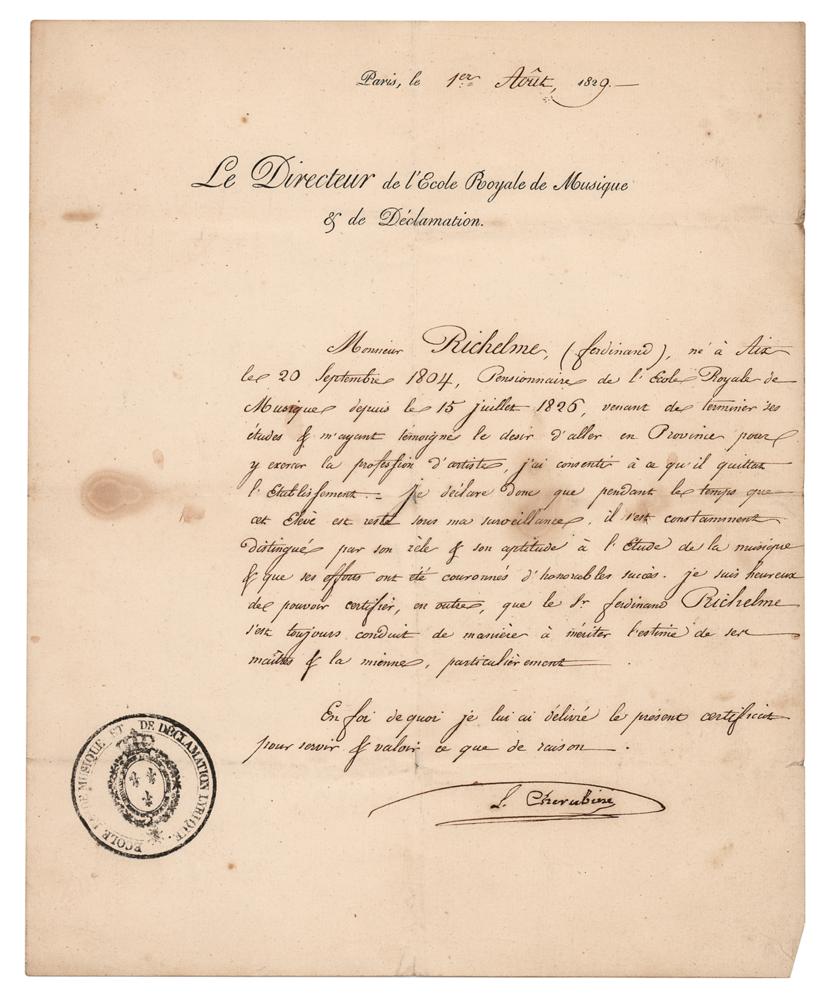 Paris, le 1er Août, 1829.—
Le Directeur de l'Ecole Royale de Musique
& de Déclamation.
Monsieur Richelme, (ferdinand), né à Aix
le 20 Septembre 1804, Pensionnaire de l'Ecole Royale de
Musique depuis le 15 juillet 1826, venant de terminer ses
études & m'ayant témoigné le desir d'aller en Province pour
y exercer la profession d'artiste, j'ai consenti à ce qu'il quittat
l'Etablissement. = je déclare donc que pendant le temps que
cet Elève est resté sous ma surveillance, il s'est constamment
distingué par son zèle & son aptitude à l'Etude de la musique
& que ses efforts ont été couronnés d'honorables succès. je suis heureux
de pouvoir certifier, en outre, que le Sr. ferdinand Richelme
s'est toujours conduit de manière à mériter l'estime de ses
maîtres & la mienne, particulièrement
En foi de quoi je lui ai délivré le présent certificat
pour servir & valoir ce que de raison.
L. Cherubini
ECOLE DE MUSIQUE ET DE DÉCLAMATION LYRIQUE.